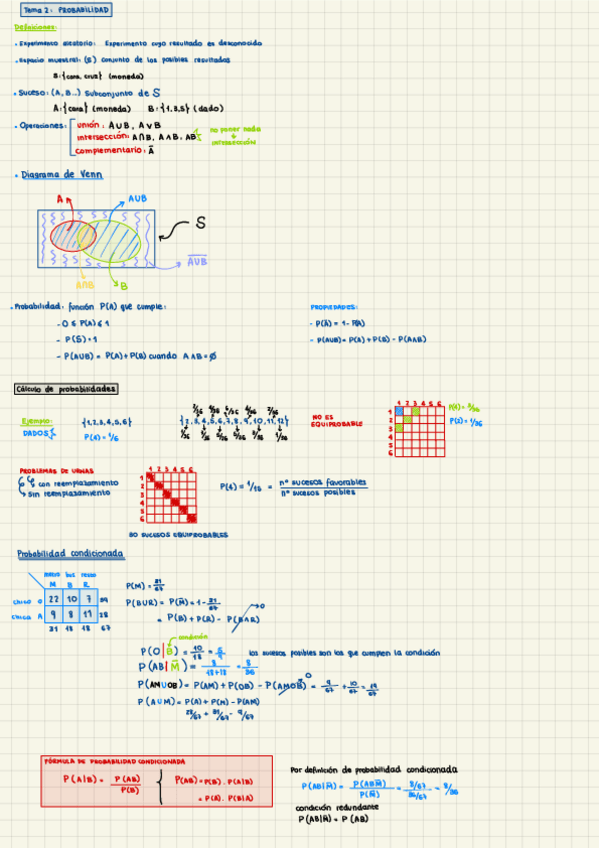 Tema 2: PROBABILIDAD
Definiciones:
• Experimento aleatorio: Experimento cuyo resultado es desconocido
• Espacio muestral: (S) conjunto de los posibles resultados
S:{cara, cruz} (moneda)
• Suceso: (A, B...) Subconjunto de S
A:{cara} (moneda) B:{1,3,5} (dado)
• Operaciones:
unión: A∪B, A∨B
intersección: A∩B, A∧B, AB
no poner nada
↓
INTERSECCIÓN
complementario: Ā
• Diagrama de Venn
A
AUB
S
A∩B
B
A̅U̅B̅
• Probabilidad: función P(A) que cumple:
- 0 ≤ P(A) ≤ 1
- P(S) = 1
- P(AUB) = P(A) + P(B) cuando A∧B = ∅
PROPIEDADES:
- P(Ā) = 1 - P(A)
- P(AUB) = P(A) + P(B) - P(A∧B)
Cálculo de probabilidades
Ejemplo:
DADOS
{1,2,3,4,5,6}
P(4) = 1/6
{2,3,4,5,6,7,8,9,10,11,12}
NO ES
EQUIPROBABLE
1 2 3 4 5 6
1
2
3
4
5
6
P(2) = 1/36
PROBLEMAS DE URNAS
con reemplazamiento
sin reemplazamiento
1 2 3 4 5 6
1
2
3
4
5
6
30 SUCESOS EQUIPROBABLES
P(4) = 1/15 = nº sucesos favorables / nº sucesos posibles
Probabilidad condicionada
metro bus resto
M B R
chico O 22 10 7 39
chica A 9 8 11 28
31 18 18 67
P(M) = 31/67
P(BUR) = P(M̄) = 1 - 31/67
= P(B) + P(R) - P(B∧R) → 0
condición
P(O|B) = 10/18 = 5/9
los sucesos posibles son los que cumplen la condición
P(AB|M̄) = 8/18+18 = 8/36
P(AMUOB) = P(AM) + P(OB) - P(AMOB) = 9/67 + 10/67 = 19/67
0
P(AUM) = P(A) + P(M) - P(AM)
28/67 + 31/67 - 9/67
FÓRMULA DE PROBABILIDAD CONDICIONADA
P(A|B) = P(AB)/P(B)
P(AB) = P(B) · P(A|B)
= P(A) · P(B|A)
Por definición de probabilidad condicionada
P(AB|M̄) = P(ABM̄)/P(M̄) = 8/67 / 36/67 = 8/36
condición redundante
P(ABM̄) = P(AB)